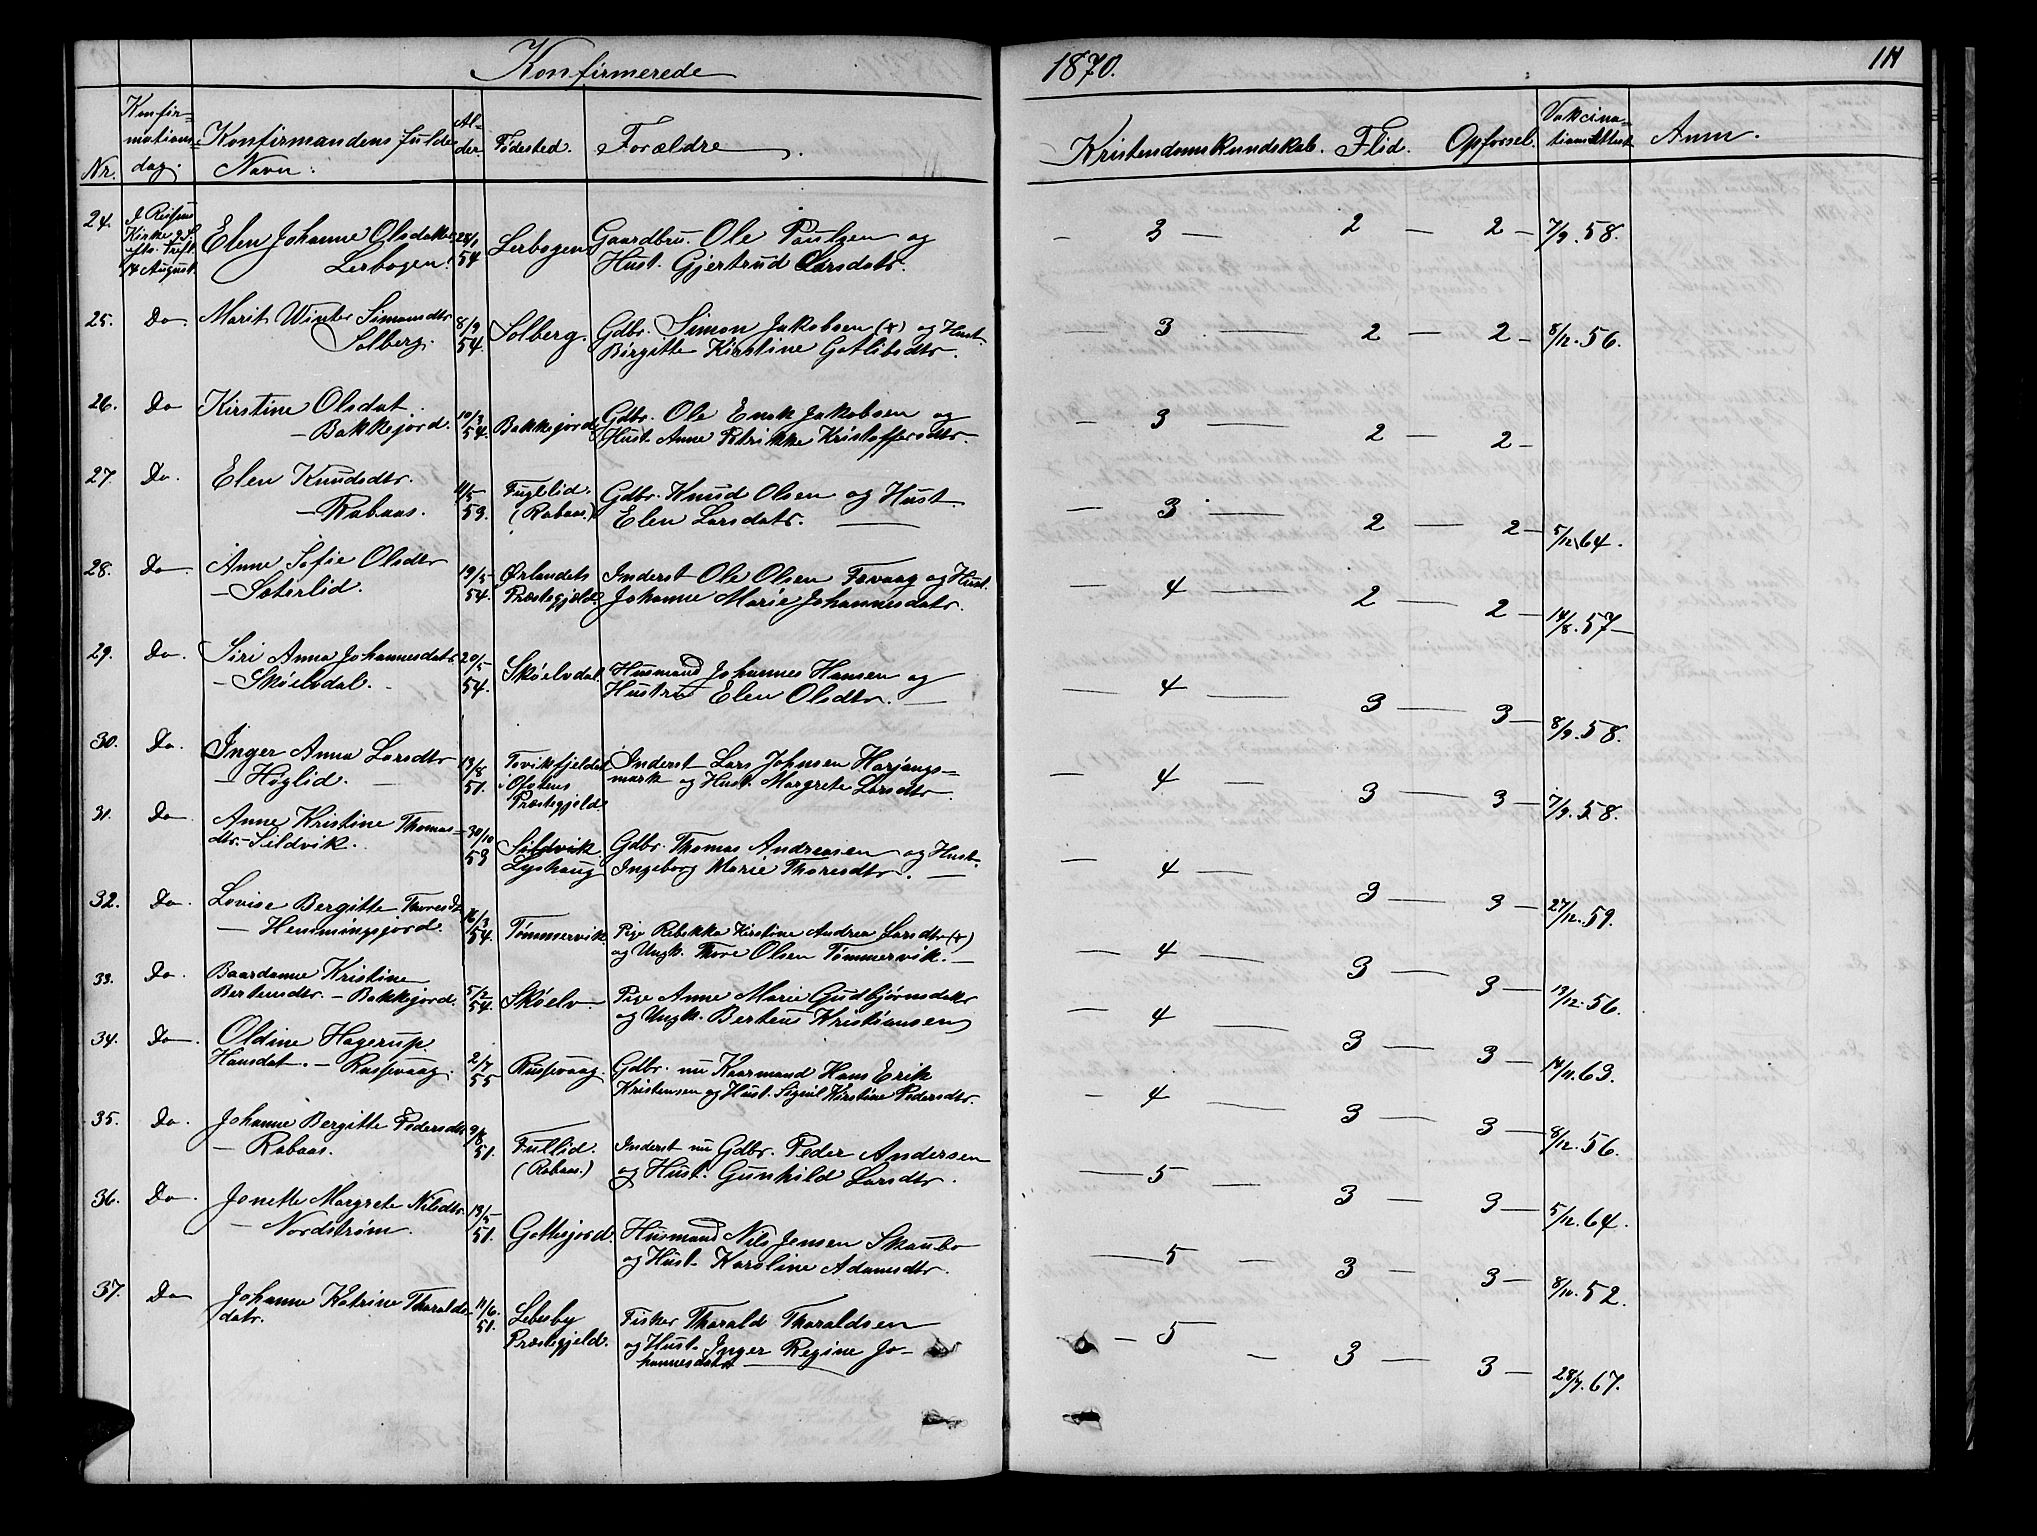 Konfirmerede
1870.
Nr.
Konfir-
mations-
dag.
Konfirmandens fulde
Navn.
Al-
der.
Fødested.
Forældre.
Kristendomskundskab.
Flid.
Opførsel.
Vakcina-
tionsattest
Anm.
24.
Kirke
14 August
Elen Johanne Olsdatter
Lerbogen.
54
Lerbogen
Gaardbru. Ole Paulsen og
Hust. Gjertrud Larsdatr.
3 2 2 7/9.58.
25. Do. Marit Winter Simonsdtr
Solberg.
8/9
54.
Solberg.
Gdbr. Simon Jakobsen (+) og Hust.
Birgitte Kirstine Gotlibsdtr.
3 2 2 8/12.56.
26. Do Kirstine Olsdat.
- Bakkejord.
10/3
54.
Bakkejord.
Gdbr. Ole Enok Jakobsen og
Hust. Anne Petrikke Kristoffersdtr.
3 2 2
27. Do. Elen Knudsdtr.
- Rabaas.
11/5
53.
Fuglelid.
(Rabaas.)
Gdbr. Knud Olsen og Hust.
Elen Larsdatr.
3 2 2 5/12.64.
28. Do. Anne Sofie Olsdtr
- Sæterlid.
19/5
54.
Ørlandets
Præstegjeld.
Inderst Ole Olsen Fævaag og Hust.
Johanne Marie Johannesdatr.
4 2 2 14/8.57
29. Do. Siri Anna Johannesdatr
- Skøelvdal.
20/5
54.
Skøelvdal.
Husmand Johannes Hansen og
Hustru Elen Olsdtr.
4 3 3 8/9.58.
30. Do. Inger Anna Larsdtr
- Høglid.
13/8
51.
Tovikfjeldet
i Ofotens
Præstegjeld.
Inderst Lars Johnsen Harjangs-
mark og Hust. Margrete Larsdtr.
4 3 3 7/9.58.
31. Do Anne Kristine Thomas-
dtr. - Sildvik.
30/10
53
Sildvik.
Lyshaug
Gdbr. Thomas Andreasen og Hust.
Ingeborg Marie Thoresdtr.
4 3 3 27/12.59.
32. Do. Lovise Bergitte Thoresdt
- Hemmingsjord.
16/3
54.
Tømmervik.
Pige Rebekka Kirstine Andrea Larsdtr (+)
og Ungk. Thore Olsen Tømmervik.
4 3 3 13/12.56.
33. Do. Baardanne Kristine
Bertensdtr. - Bakkejord.
5/2
54.
Skøelv
Pige Anne Marie Gudbjørnsdatr
og Ungk. Berteus Kristiansen
4 3 3 14/11.63.
34. Do. Oldine Hagerup.
Hansdat. - Russevaag.
2/7
55
Russevaag.
Gdbr. nu Kaarmand Hans Erik
Kristensen og Hust. Sigril Kirstine Pedersdtr.
4 3 3 8/12.56.
35. Do. Johanne Bergitte Pedersdtr
- Rabaas.
9/8
51.
Fullid.
(Rabaas.)
Inderst nu Gdbr. Peder Andersen
og Hust. Gunhild Larsdtr.
5 3 3 5/12.64.
36. Do. Jonette Margrete Nilsdtr.
- Nordstrøm.
51.
Gottesjord.
Husmand Nils Jensen Skaubo
og Hust. Karoline Adamsdtr.
5 3 3 8/10.52.
37. Do Johanne Katrine Tharalds-
datr.
11/6.
51.
Lebesby
Præstegjeld.
Fisker Tharald Tharaldsen
og Hust. Inger Regine Jo-
hannesdatr
5 3 3 28/7.67.